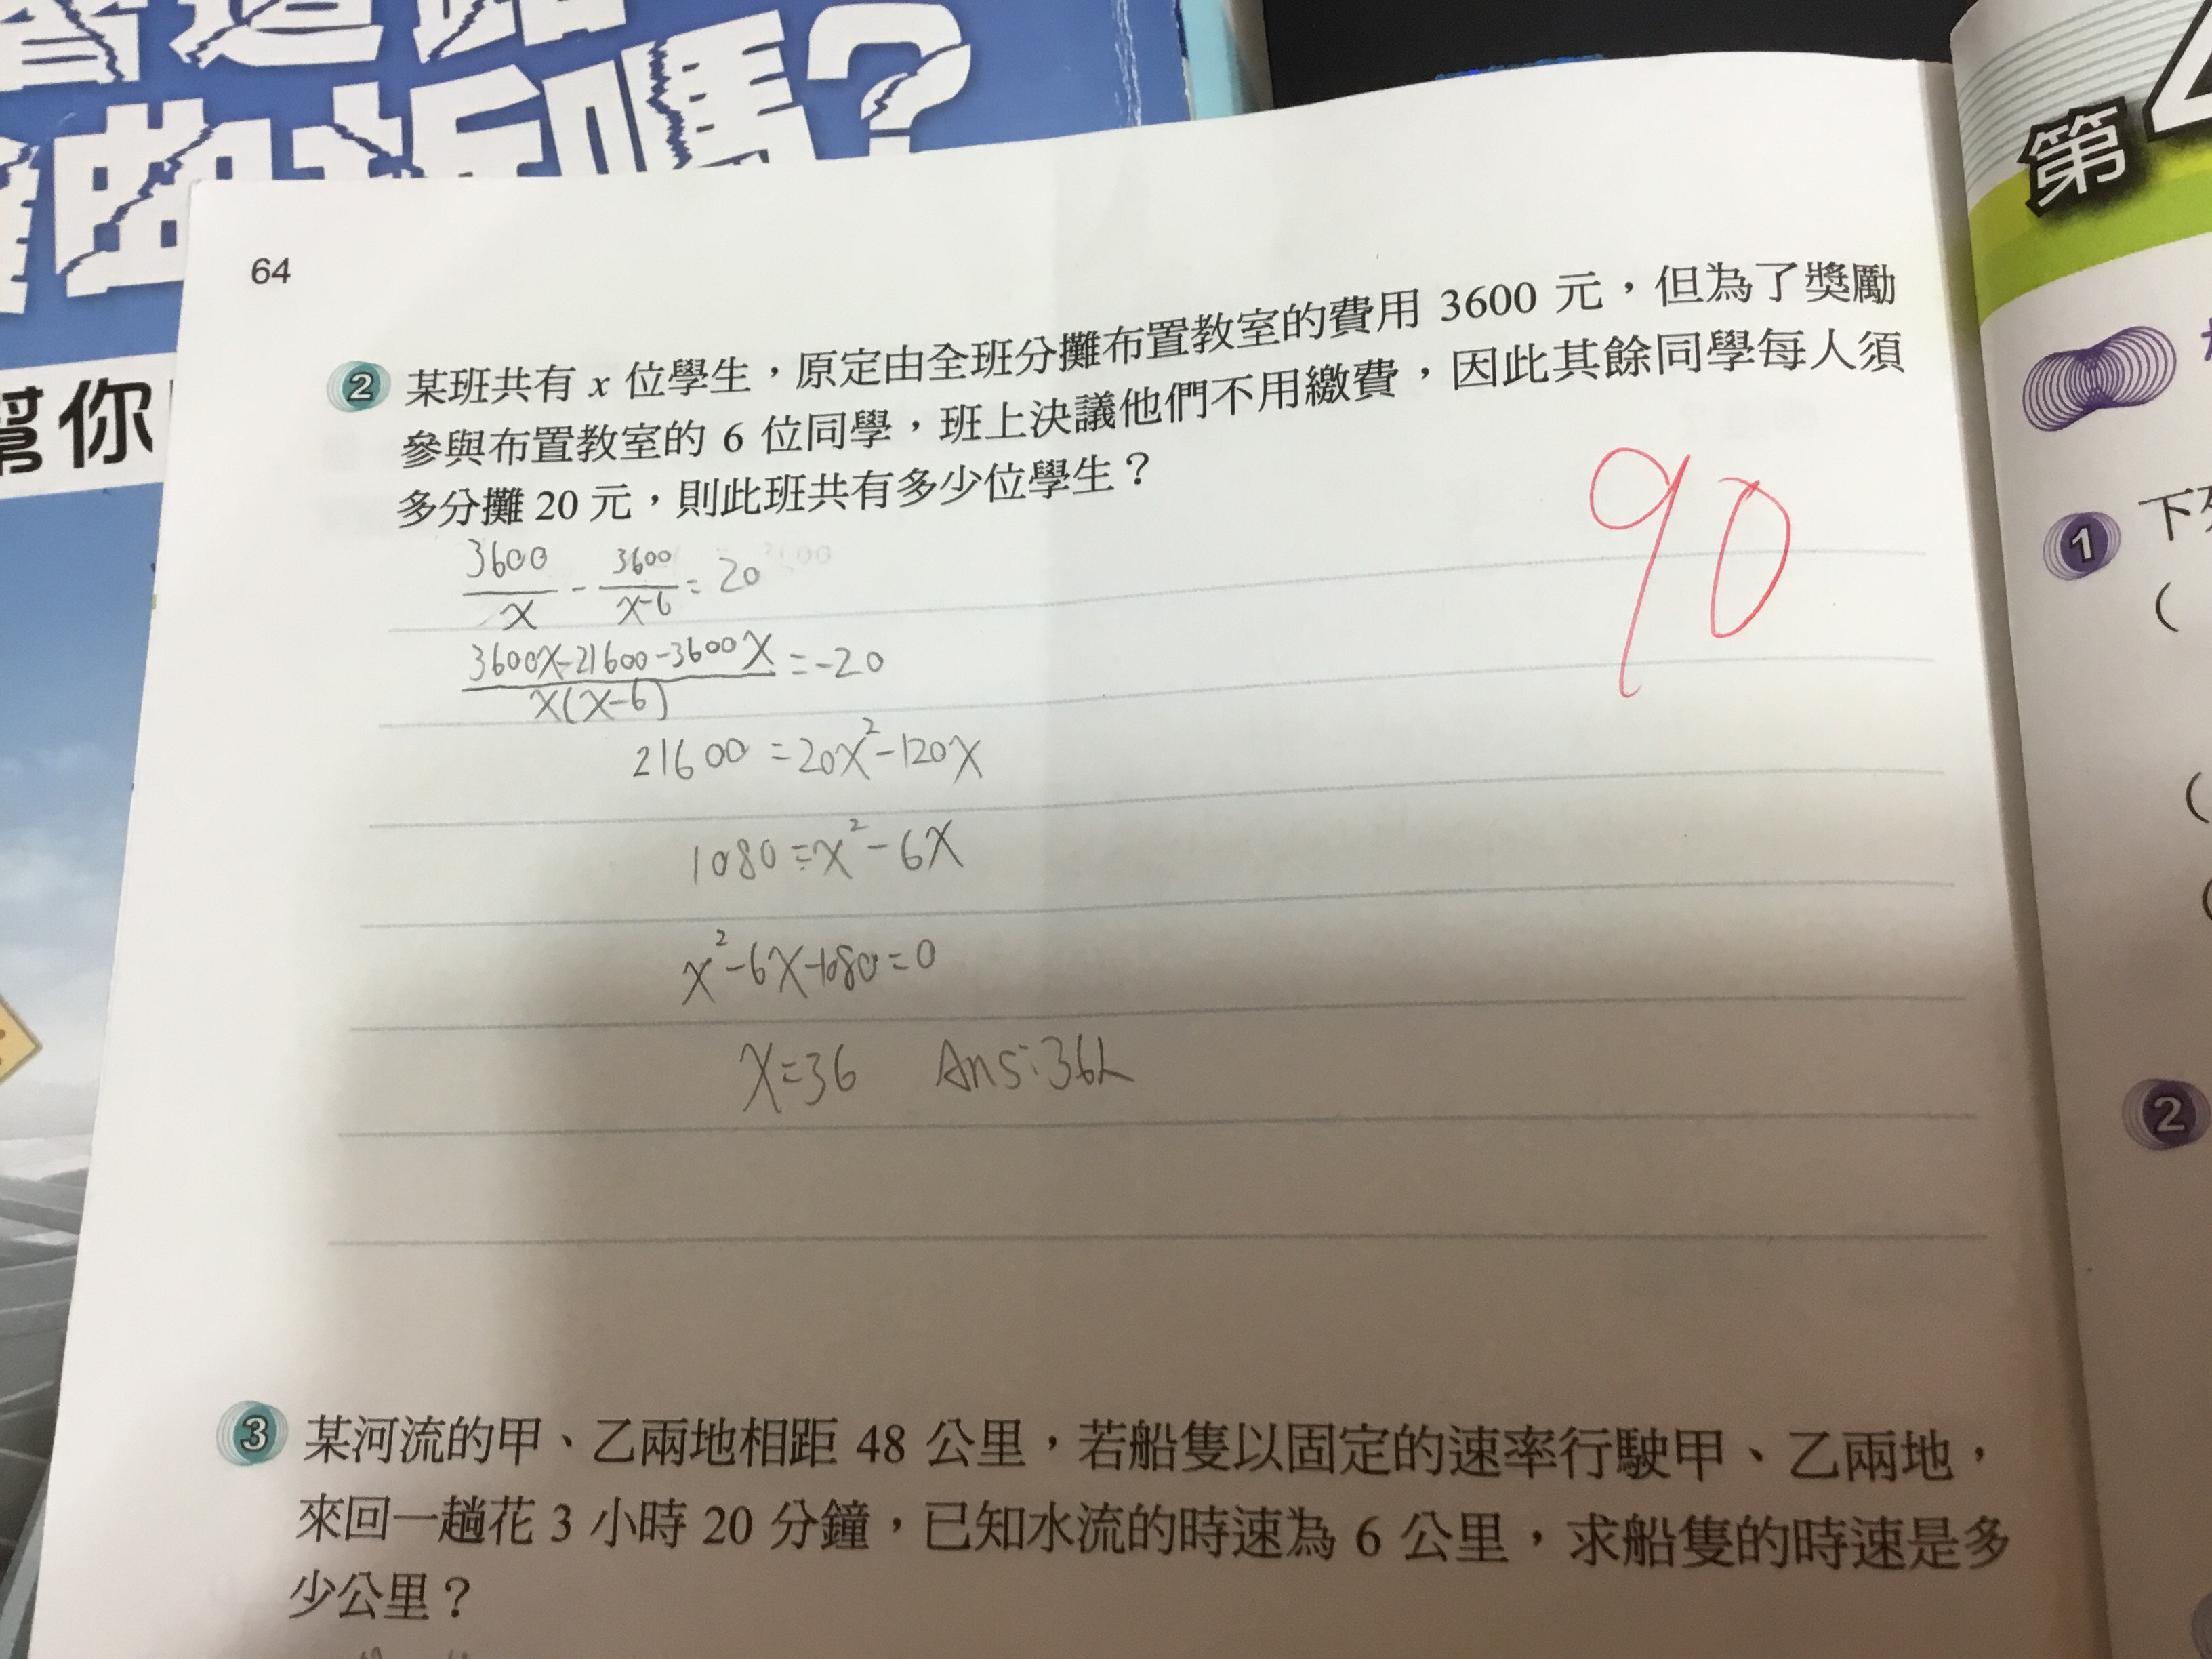 嗎?
幫你
64
2 某班共有 x 位學生，原定由全班分攤布置教室的費用 3600 元，但為了獎勵
參與布置教室的 6 位同學，班上決議他們不用繳費，因此其餘同學每人須
多分攤 20 元，則此班共有多少位學生？
90
3600/x - 3600/x-6 = 20
3600x-21600-3600x/x(x-6) = -20
21600 = 20x²-120x
1080 = x²-6x
x²-6x-1080=0
x=36 Ans:36人
3 某河流的甲、乙兩地相距 48 公里，若船隻以固定的速率行駛甲、乙兩地，
來回一趟花 3 小時 20 分鐘，已知水流的時速為 6 公里，求船隻的時速是多
少公里？
第
1 下
(
(
2